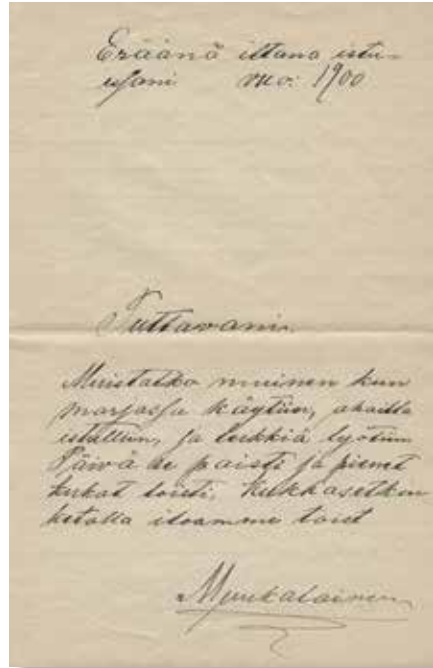 Eräänä iltana istu-
essani vuo: 1900
Tuttavani.
Muistatko muinen kun
marjassa käytiin, ahoilla
istuttiin, ja leikkiä lyötiin
Päivä se paisti ja pienet
kukat loisti. Kukkasetkin
kedolla iloamme toivt
Muukalainen